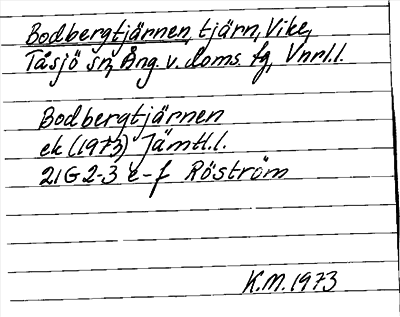 Bodbergtjärnen, tjärn, Vike,
Tåsjö sn, Ång. v. doms. fg, Vnrl.l.
Bodbergtjärnen
ek (1973) Jämtl.l.
21G 2-3 e-f Röström
K.M. 1973